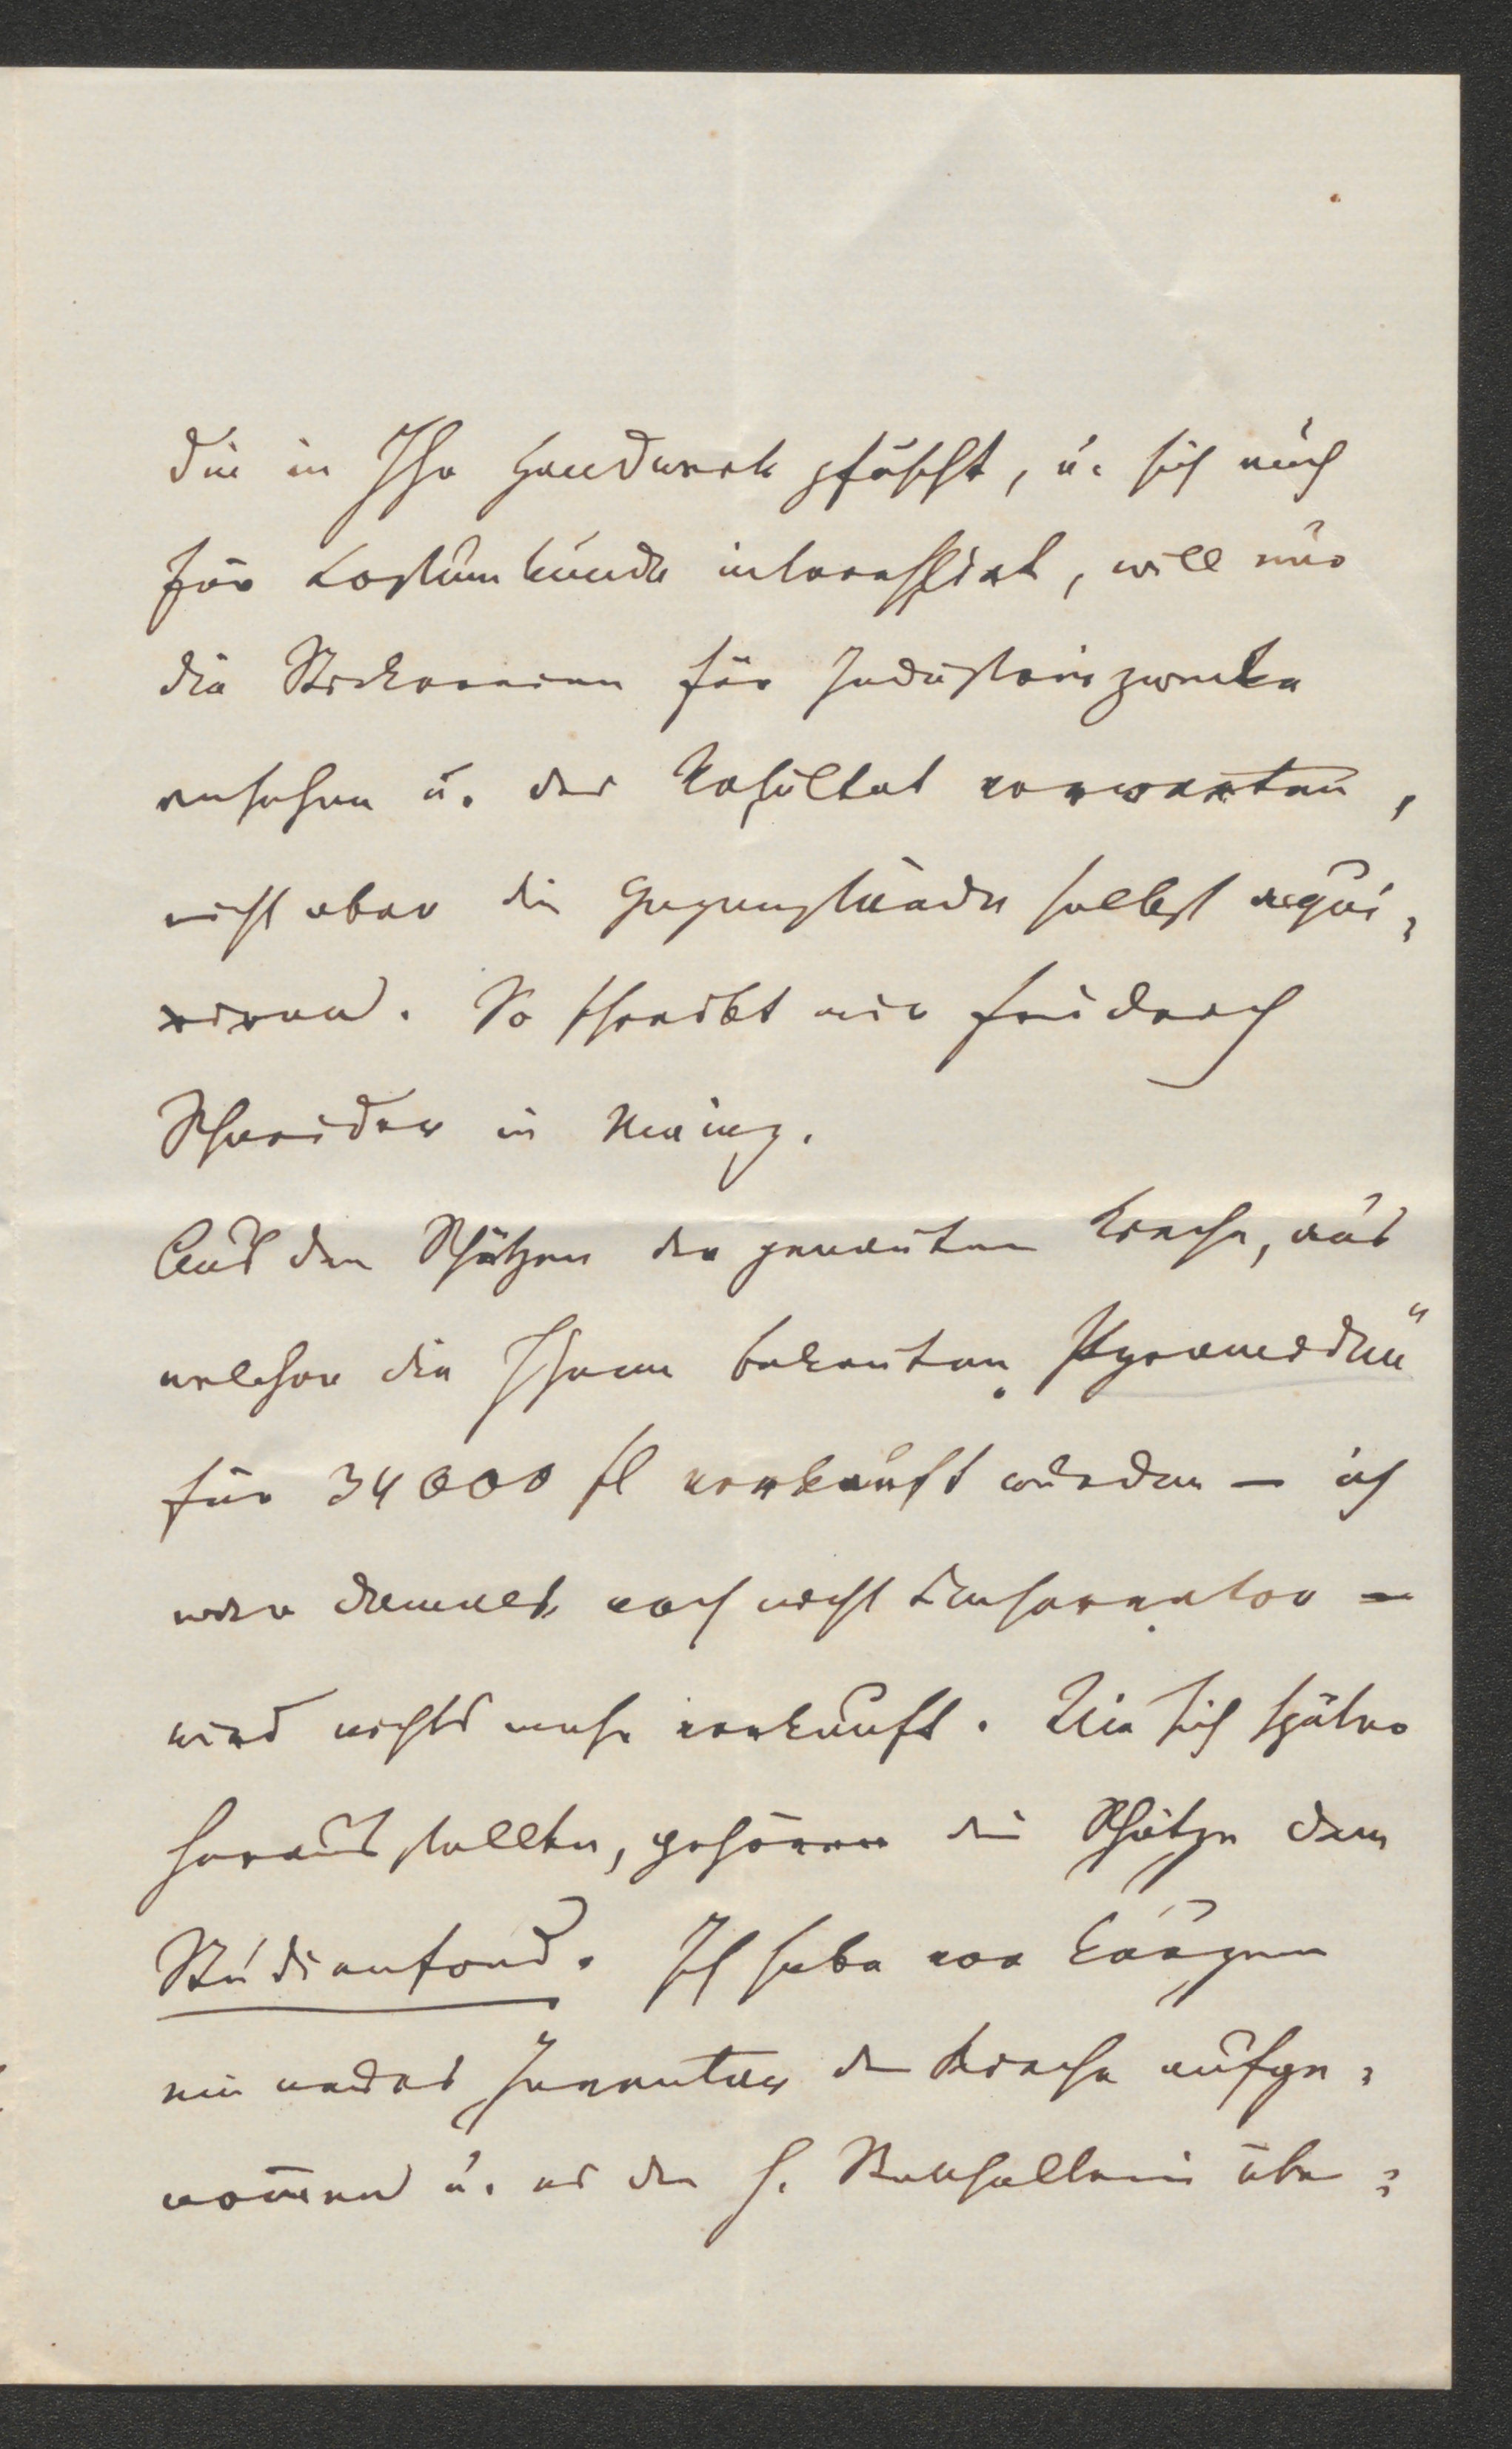 die in Ihr Handwerk pfuscht, u. sich auch
für Kostümkunde interessirt, will nur
die Stickereien für Industriezwecke
ansehen u. das Resultat verwerten,
nicht aber die Gegenstände selbst aqui=
riren. So schreibt mir Friedrich
Schneider in Mainz.
Aus den Schätzen der genañten Kirche, aus
welcher die Ihnen bekañten „Pyramiden"
für 34000 fl verkauft wurden — ich
war damals noch nicht Conservator —
wird nichts mehr verkauft. Wie sich später
herausstellte, gehören die Schätze dem
Studienfond. Ich habe vor Kurzem
ein neues Inventar der Kirche aufge=
nom̄en u. es der h. Statthalterei über=